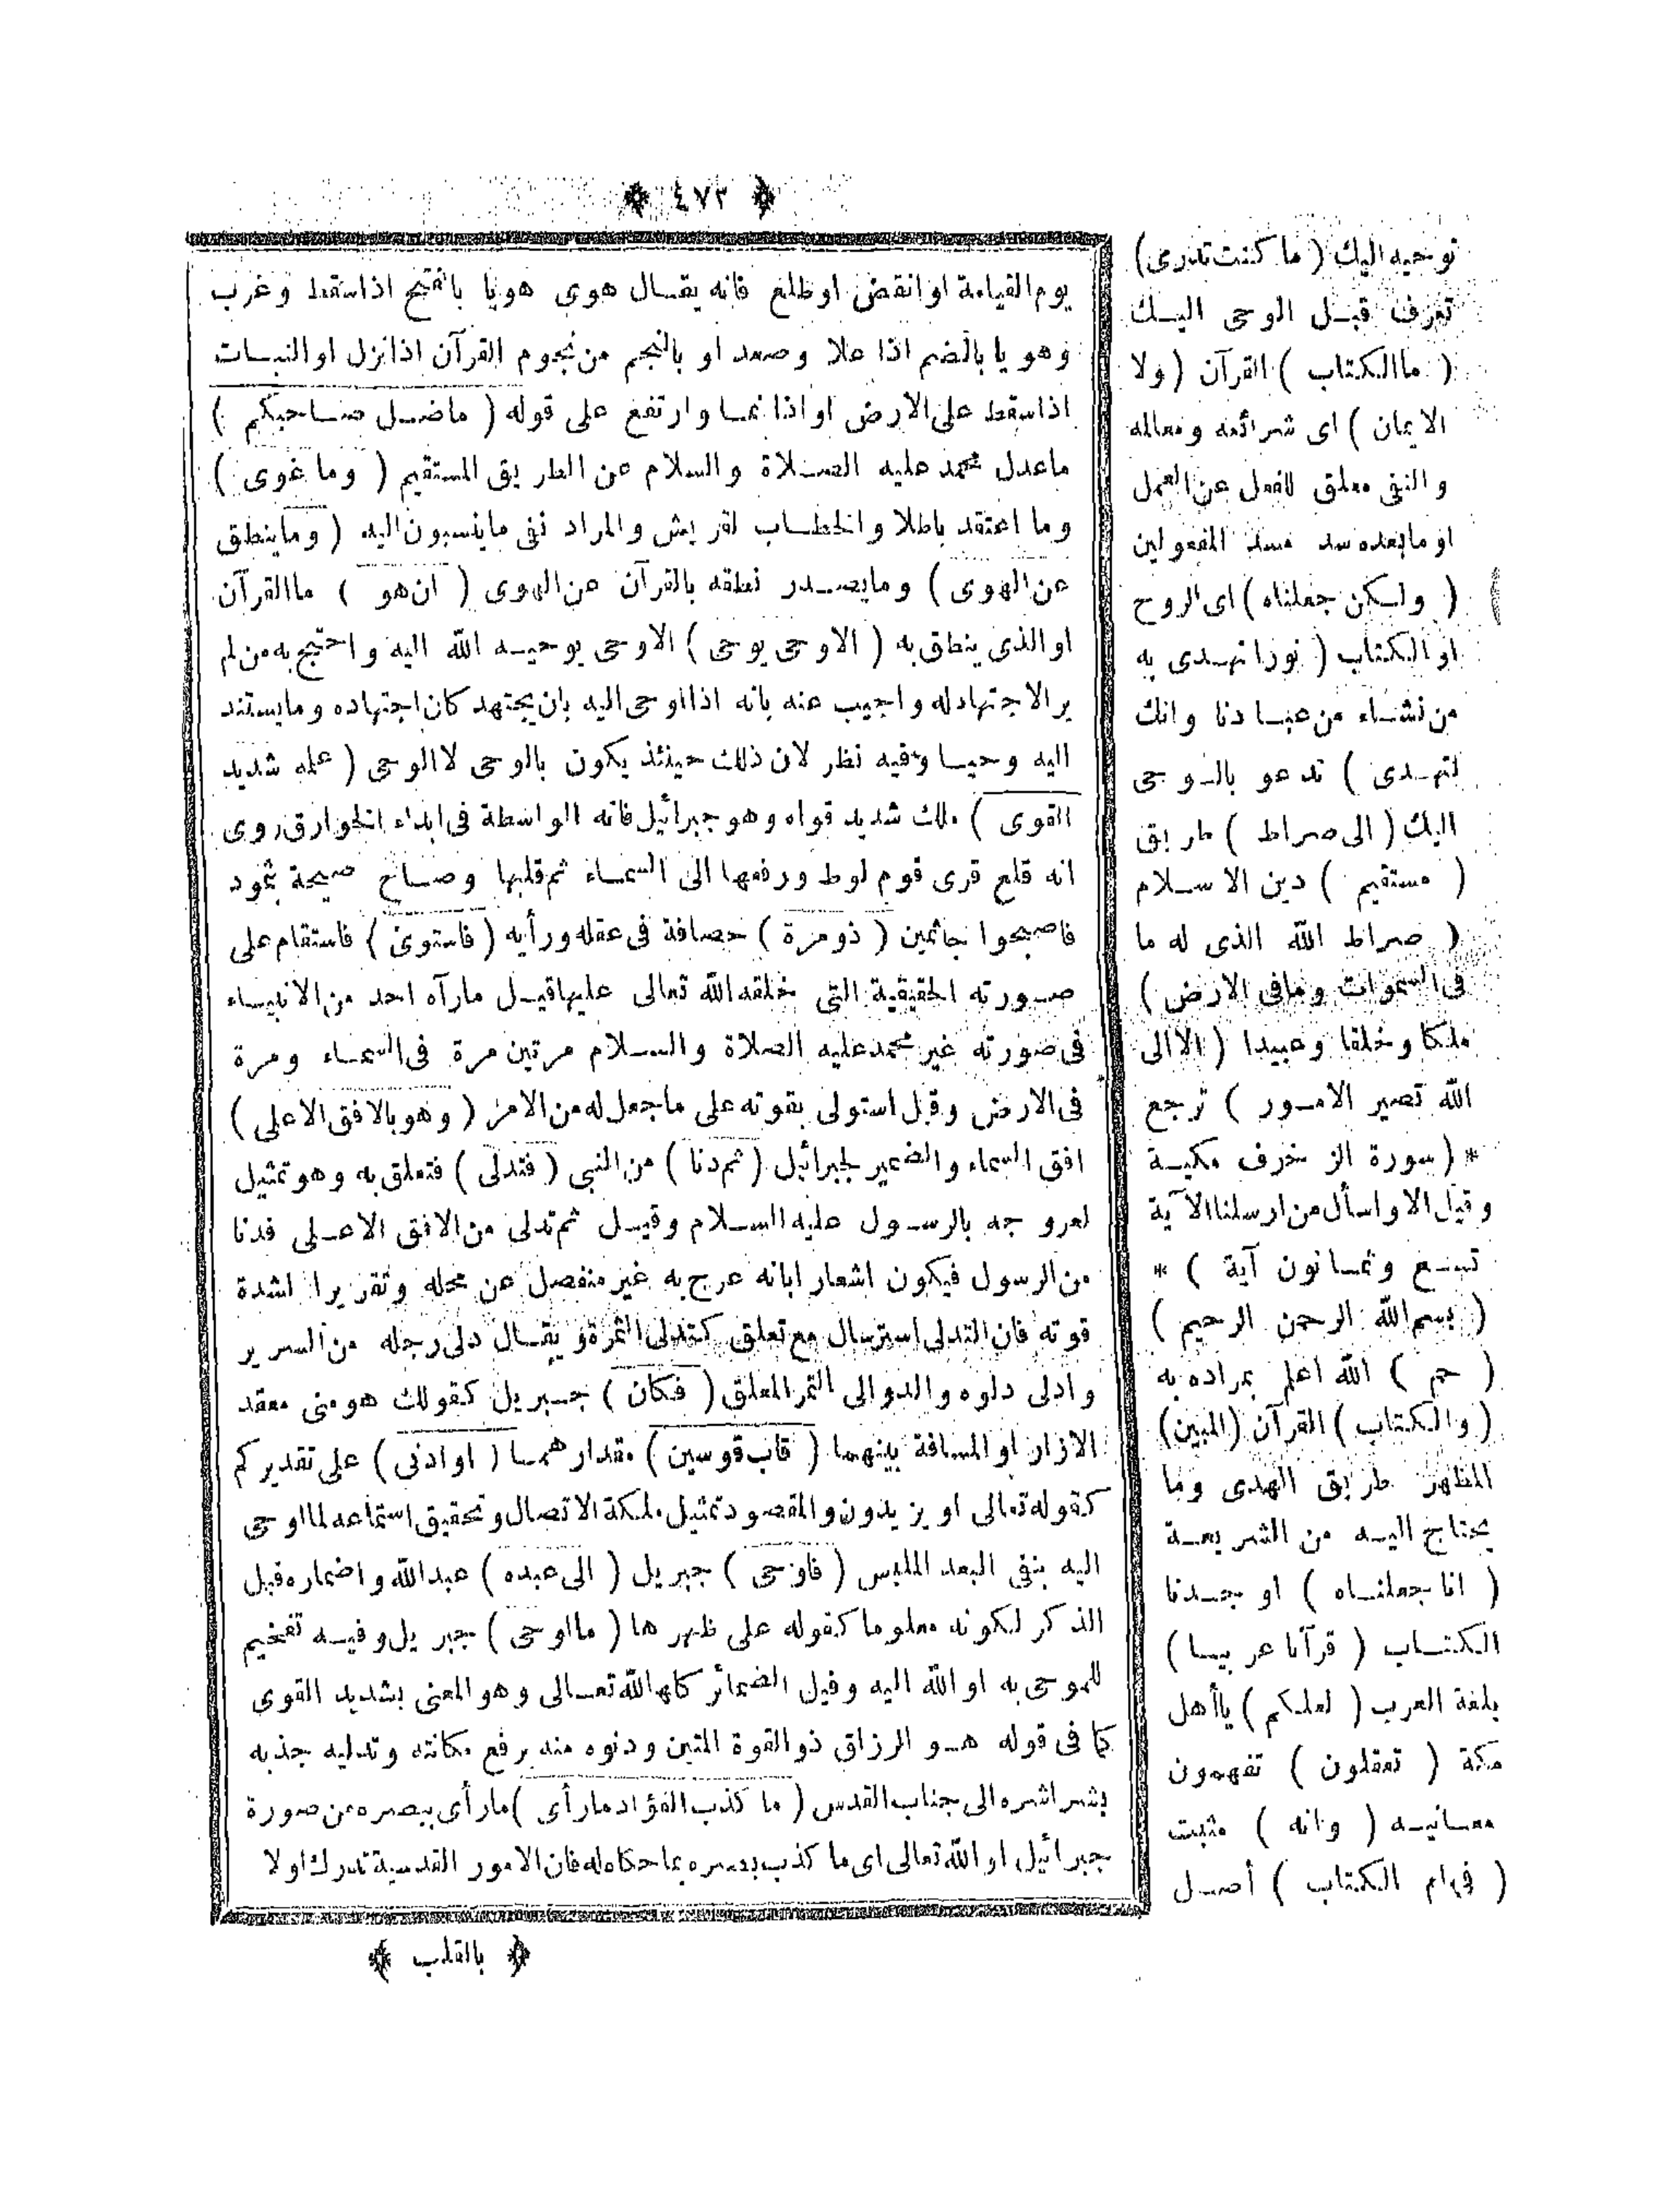 ﴿ ٤٧٣ ﴾
يوم القيامة او انقض او طلع فانه يقال هوى هويا بالفتح اذا سقط وغرب
وهويا بالضم اذا علا وصعد او بالنجم من نجوم القرآن اذا نزل او النبات
اذا سقط على الارض او اذا نما وارتفع على قوله ( ماضل صاحبكم )
ماعدل محمد عليه الصلاة والسلام عن الطريق المستقيم ( وما غوى )
وما اعتقد باطلا والخطاب لقريش والمراد نفى ماينسبون اليه ( وماينطق
عن الهوى ) ومايصدر نطقه بالقرآن عن الهوى ( ان هو ) ماالقرآن
او الذى ينطق به ( الاوحى يوحى ) الاوحى يوحيه الله اليه واحتج به من لم
ير الاجتهادله واجيب عنه بانه اذا اوحى اليه بان يجتهد كان اجتهاده ومايستند
اليه وحيا وفيه نظر لان ذلك حينئذ يكون بالوحى لاالوحى ( علمه شديد
القوى ) ملك شديد قواه وهو جبرائيل فانه الواسطة فى ابداء الخوارق روى
انه قلع قرى قوم لوط ورفعها الى السماء ثم قلبها وصاح صيحة بثمود
فاصبحوا جاثمين ( ذومرة ) حصافة فى عقله ورأيه ( فاستوى ) فاستقام على
صورته الحقيقية التى خلقه الله تعالى عليها قيل مارآه احد من الانبياء
فى صورته غير محمد عليه الصلاة والسلام مرتين مرة فى السماء ومرة
فى الارض وقيل استولى بقوته على ماجعل له من الامر ( وهو بالافق الاعلى )
افق السماء والضمير لجبرائيل ( ثم دنا ) من النبى ( فتدلى ) فتعلق به وهو تمثيل
لعروجه بالرسول عليه السلام وقيل ثم تدلى من الافق الاعلى فدنا
من الرسول فيكون اشعارا بانه عرج به غير منفصل عن محله وتقريرا لشدة
قوته فان التدلى استرسال مع تعلق كتدلى الثمرة ويقال دلى رجله من السرير
وادلى دلوه والدوالى الثمر المعلق ( فكان ) جبريل كقولك هو منى معقد
الازار او المسافة بينهما ( قاب قوسين ) مقدارهما ( اوادنى ) على تقديركم
كقوله تعالى او يزيدون والمقصود تمثيل ملكة الاتصال وتحقيق استماعه لما اوحى
اليه بنفى البعد الملبس ( فاوحى ) جبريل ( الى عبده ) عبدالله واضماره قبل
الذكر لكونه معلوما كقوله على ظهرها ( مااوحى ) جبريل وفيه تفخيم
للموحى به او الله اليه وقيل الضمائر كلها لله تعالى وهو المعنى بشديد القوى
كما فى قوله هو الرزاق ذو القوة المتين ودنوه منه برفع مكانته وتدليه جذبه
بشراشره الى جناب القدس ( ما كذب الفؤاد مارأى ) مارأى ببصره من صورة
جبرائيل او الله تعالى اى ما كذب بصره بما حكاه له فان الامور القدسية تدرك اولا
﴿ بالقلب ﴾
توحيه اليك ( ما كنت تدرى )
تعرف قبل الوحى اليك
( ماالكتاب ) القرآن ( ولا
الايمان ) اى شرائعه ومعالمه
والنفى معلق للفعل عن العمل
او مابعده سد مسد المفعولين
( ولكن جعلناه ) اى الروح
او الكتاب ( نورا نهدى به
من نشاء من عبادنا وانك
لتهدى ) تدعو بالوحى
اليك ( الى صراط ) طريق
( مستقيم ) دين الاسلام
( صراط الله الذى له ما
فى السموات ومافى الارض )
ملكا وخلقا وعبيدا ( الاالى
الله تصير الامور ) ترجع
* ( سورة الزخرف مكية
وقيل الا واسأل من ارسلنا الآية
تسع وثمانون آية ) *
( بسم الله الرحمن الرحيم )
( حم ) الله اعلم بمراده به
( والكتاب ) القرآن ( المبين )
المظهر طريق الهدى وما
يحتاج اليه من الشريعة
( انا جعلناه ) اوجدنا
الكتاب ( قرآنا عربيا )
بلغة العرب ( لعلكم ) ياأهل
مكة ( تعقلون ) تفهمون
معانيه ( وانه ) مثبت
( فى ام الكتاب ) أصل